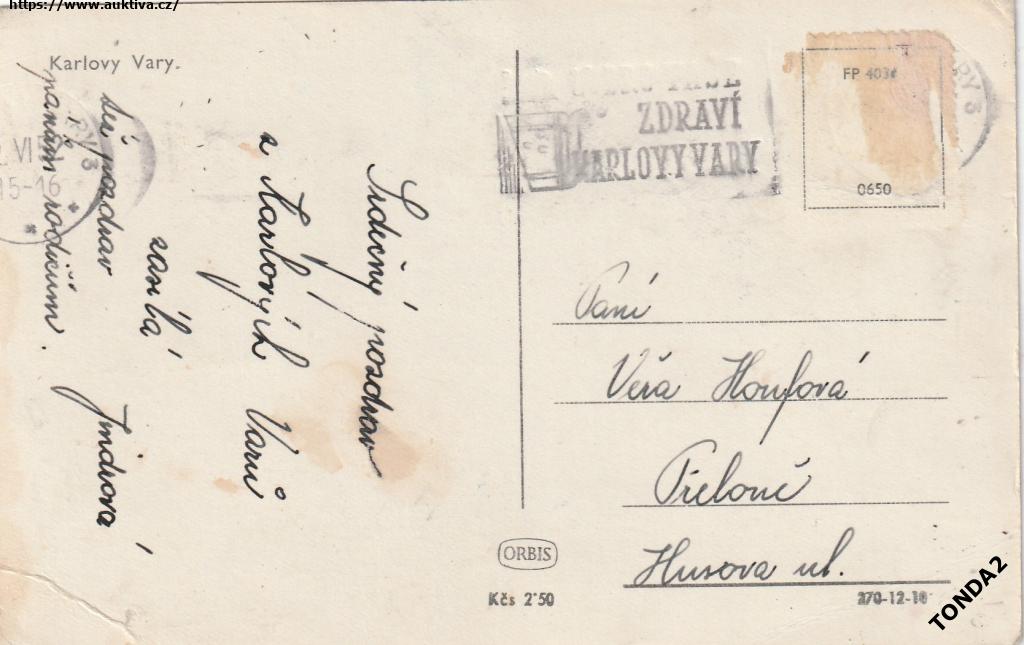 https://www.auktiva.cz/
Karlovy Vary.
Srdečný pozdrav
z Karlových Varů
zasílá Jindrová
též pozdrav
rodičům.
ZDRAVÍ
KARLOVY VARY
RY 3
VI
15-16
RY 3
FP 403
0650
Paní
Věra Houfová
Přelouč
Husova ul.
ORBIS
Kčs 2'50
270-12-18
TONDA2